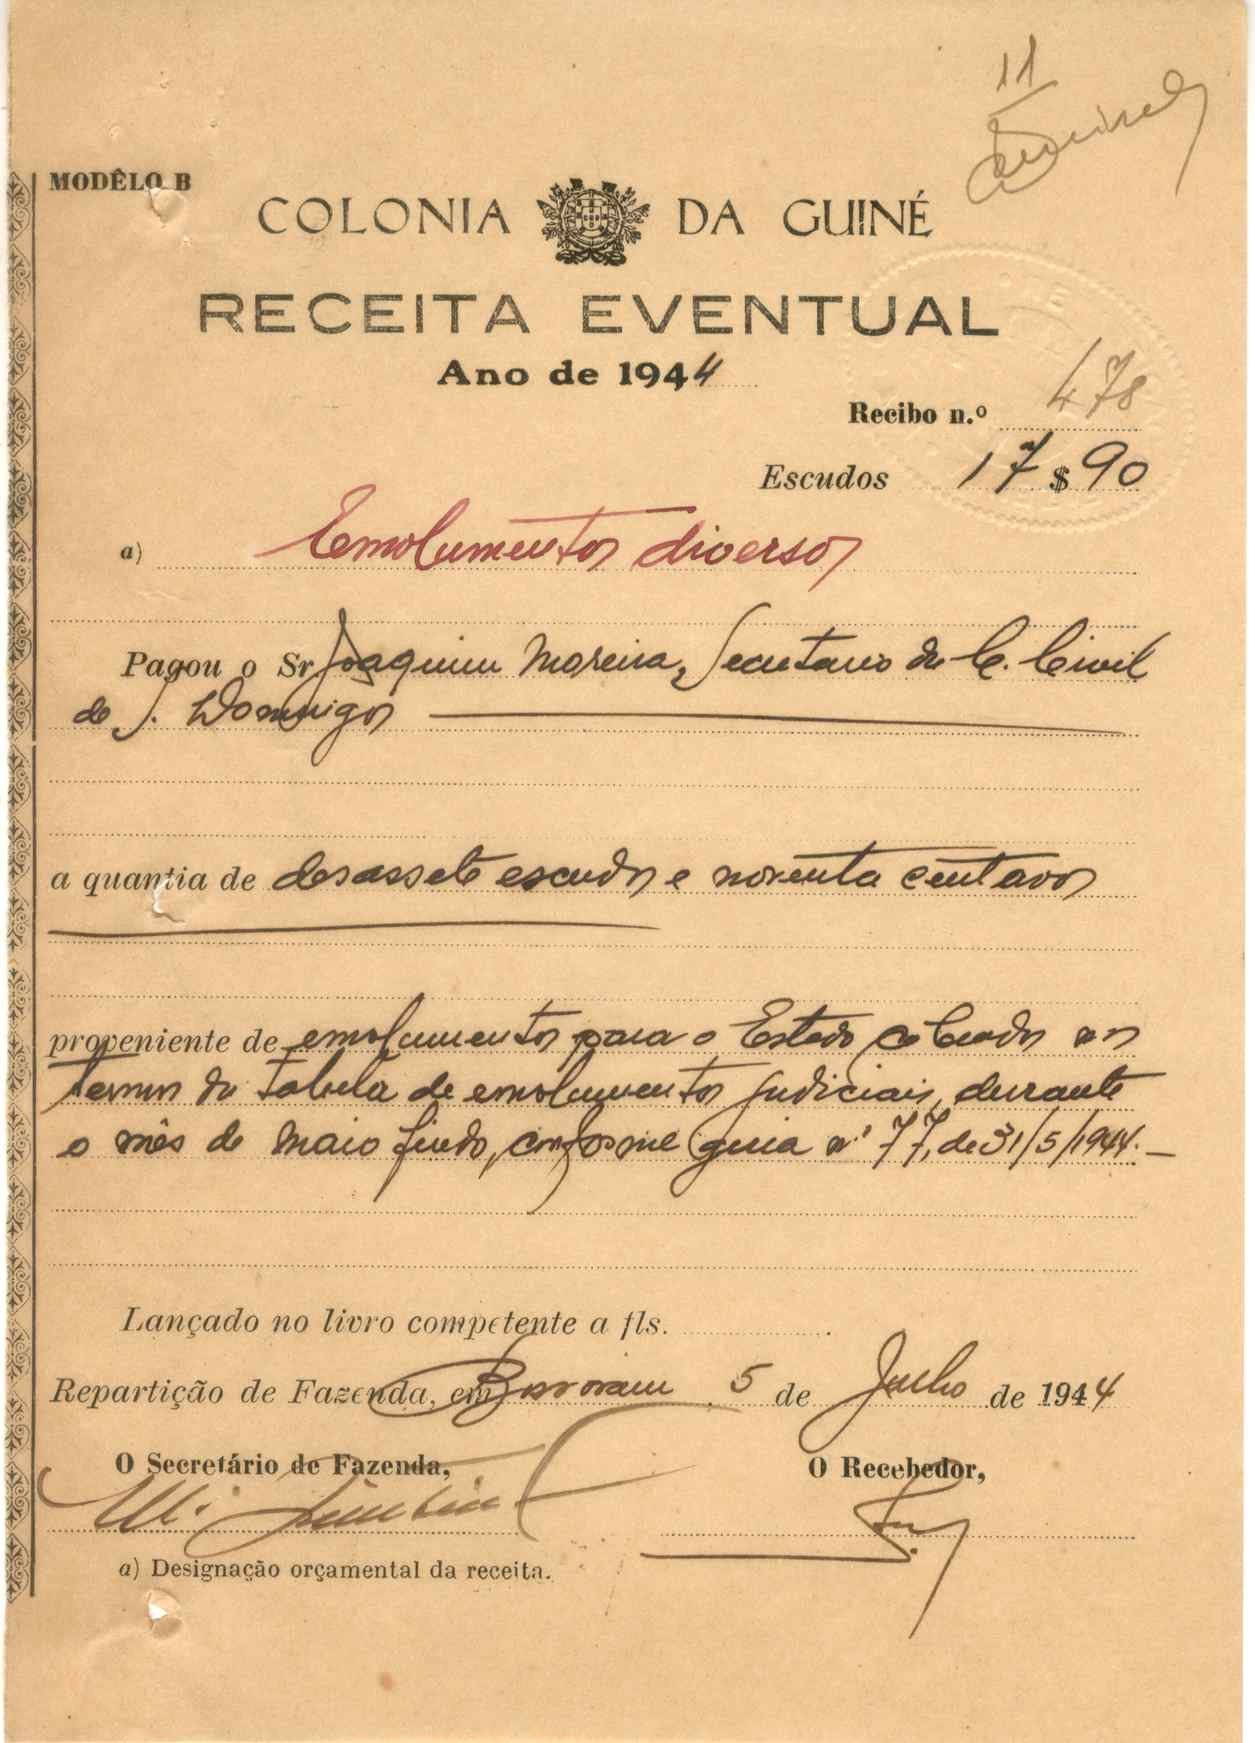 11
MODÊLO B
COLONIA DA GUINÉ
RECEITA EVENTUAL
Ano de 1944
Recibo n.º 478
Escudos 17$90
a) Emolumentos diversos
Pagou o Sr. Joaquim Moreira, Secretario da C. Civil
de S. Domingos
a quantia de desassete escudos e noventa centavos
proveniente de emolumentos para o Estado cobrados nos
termos da tabela de emolumentos judiciais, durante
o mês de Maio findo, conforme guia nº 77, de 31/5/1944.
Lançado no livro competente a fls.
Repartição de Fazenda, em 5 de Julho de 1944
O Secretário de Fazenda,
O Recebedor,
a) Designação orçamental da receita.